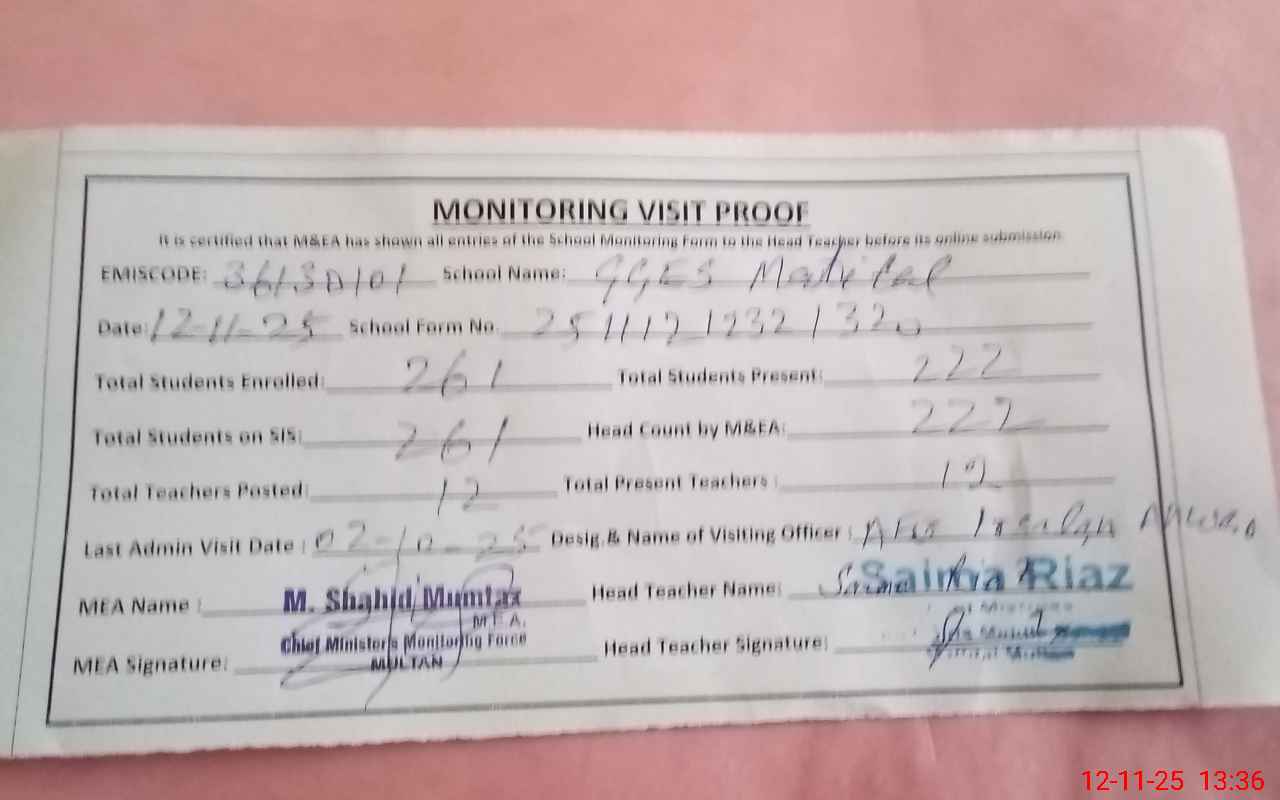 MONITORING VISIT PROOF
It is certified that M&EA has shown all entries of the School Monitoring Form to the Head Teacher before its online submission.
EMISCODE: 36130101 School Name: GGES
Date: 12-11-25 School Form No. 2511121232132
Total Students Enrolled: 261 Total Students Present: 222
Total Students on SIS: 261 Head Count by M&EA: 222
Total Teachers Posted: 12 Total Present Teachers: 12
Last Admin Visit Date: 02-10-25 Desig.& Name of Visiting Officer:
MEA Name: M. Shahid Mumtaz Head Teacher Name: Saima Riaz
M.E.A.
Chief Minister's Monitoring Force
MULTAN
MEA Signature: Head Teacher Signature:
12-11-25 13:36